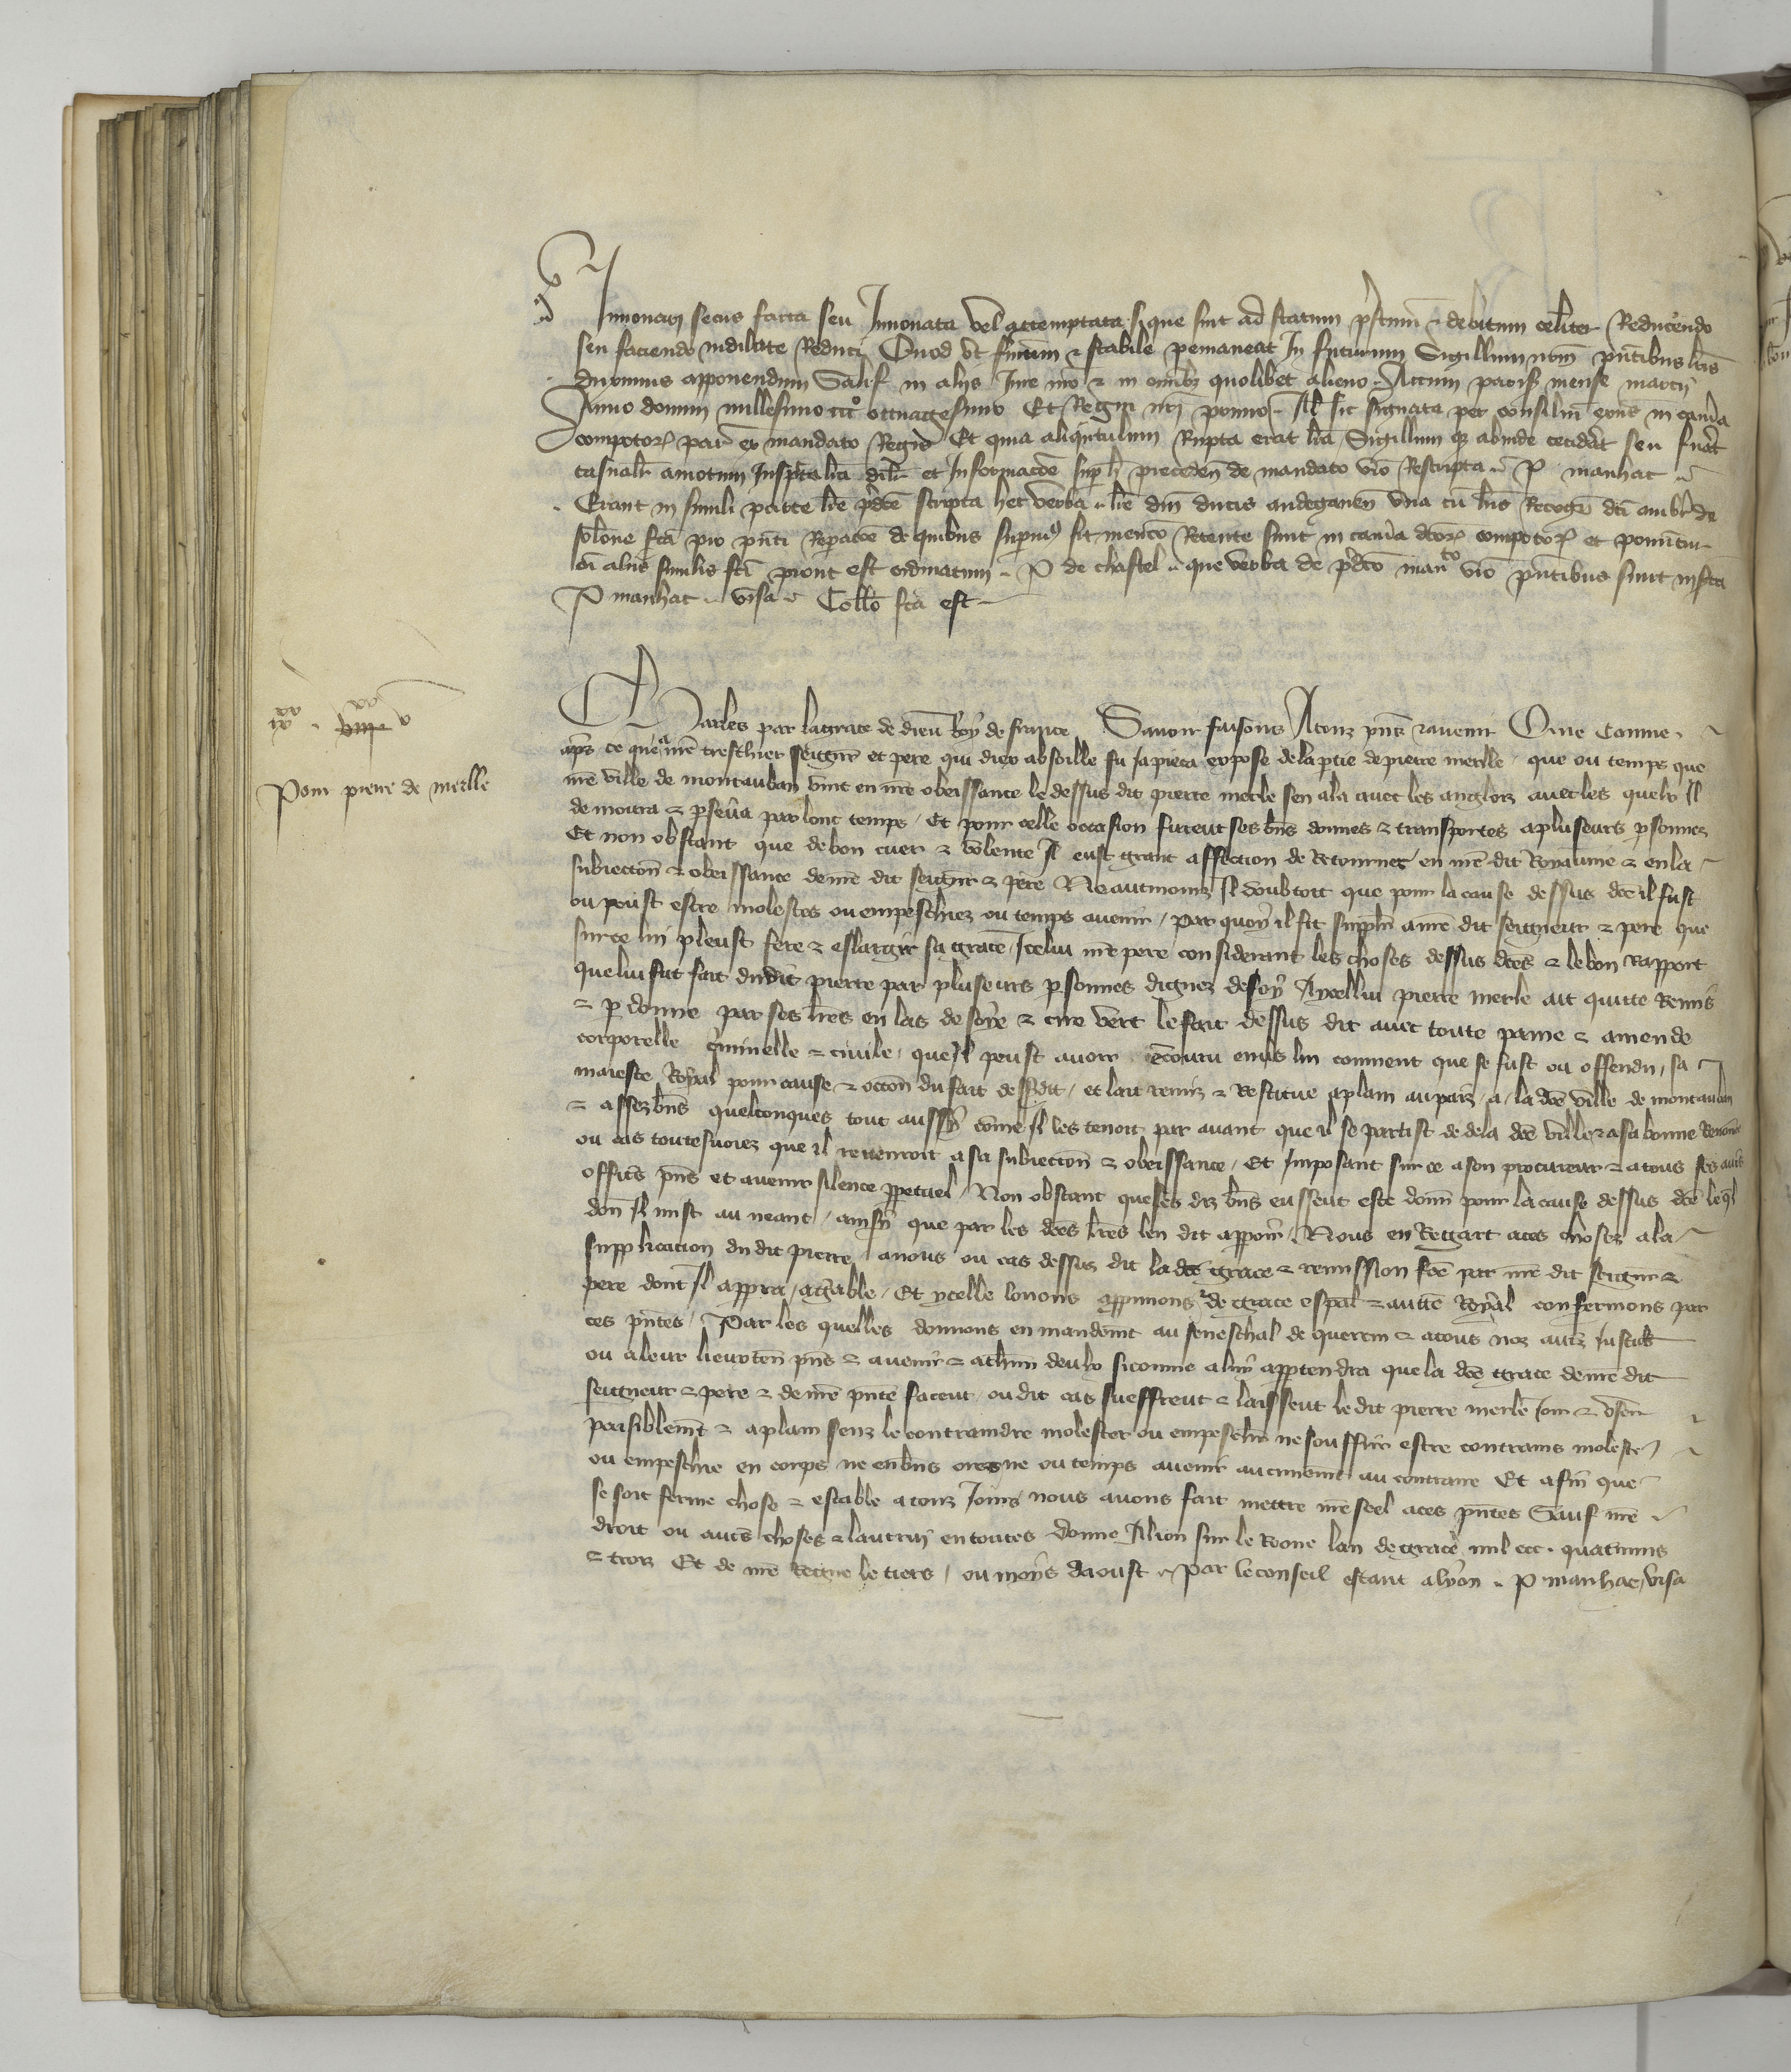 Innovari secus facta seu Innovata vel attemptata si que sint ad statum p̃stinũ ⁊ debitum celit̃er Reducẽndo
seu faciendo indilate Reduci Quod ut firmum ⁊ stabile ꝑmaneat In futurum Sigillum nr̃m pñtibus lr̃is
duximus apponendum Salvo in aliis Jure nr̃o ⁊ in omĩbꝫ quolibet alieno. Actum parisꝫ mense marcii
Anno domini millesimo ccc° octuagesimo Et Regni nr̃i primo. Al̃ sic signata per consiliũ eoñs in cam̃a
compotorꝫ par̃ ex mandato Regis Et quia aliqñtulum Rupta erat lr̃a Sigillum qꝫ abinde cecidãt seu fuãt
casualr̃ amotum
Erant in simili parte lr̃e p̃dc̃e scripta hec verba. lr̃e dñi ducis andegaveñ una cũ lr̃is
sunt in cam̃a dc̃orꝫ compotorꝫ et ponũtur
cũ aliis similis fc̃i prout est ordinatum. P de chastel. que verba de p̃dc̃o man^to vr̃o pñtibus sunt insc̃ta
P manhac. visa. Coll̃o fc̃a est
Pour pierre de merlle
Charles par la grace de dieu Roy de france Savoir faisons A touz pñs ⁊ avenir Que Comme
apr̃s ce que a nr̃e treschier seigñr et pere qui diex absoille fu ja pieca expose de la ꝑtie de pierre merlle, que ou temps que
nr̃e ville de montauban vint en nr̃e obeissance le dessus dit pierre merle sen ala avec les anglois avec les quelx Il
demoura ⁊ ꝑsev̾a par lonc temps, Et pour celle occasion furent ses bñs donnes ⁊ transportes a pluseurs ꝑsonnes
Et non obstant que de bon cuer ⁊ volente Il eust grant affection de Retourner en nr̃e dit Royaume ⁊ en la
subiection ⁊ obeissance de nr̃e dit seigñr ⁊ pere Neantmoins Il doubtoit que pour la cause dessus dc̃e il fust
ou peust estre molestes ou empeschiez ou temps avenir, par quoy il fit supplir̃ a nr̃e dit seigneur ⁊ pere que
sur ce lui pleust fere ⁊ eslargir sa grace, Icelui nr̃e pere considerant les choses dessus dc̃es ⁊ le bon rapport
que lui fut fait dudit pierre par pluseurs ꝑsonnes dignes de foy Aycellui pierre merle ait quitte Remis
⁊ ꝑdonne par ses lr̃es en las de soye ⁊ cire vert le fait dessus dit avec toute paine ⁊ amende
corporelle c̃minelle ⁊ civile, que Il peust avoir encouru env̾s lui comment que se fust ou offendu, sa
maieste Royal pour cause ⁊ occõn du fait dessdit, et lait remis ⁊ Restitue a plain au pais, a la dc̃e ville de montauban
⁊ a sses bñs quelconques tout aussy cõme Il les tenoit par avant que il se partist de dela dc̃e ville ⁊ a sa bonne Renõme
ou cas toutesvoies que il revenroit a sa subiection ⁊ obeissance, Et Imposant sur ce a son procureur ⁊ a tous ses aut̃s
offic̃s pñs et avenir silence ꝑpetuel, Non obstant que ses diz bñs eussent este donñ pour la cause dessus dc̃e leq̃l
don Il mist au neant, ainsy que par les dc̃es lr̃es len dit apparoir̃, Nous en Regart a ces choses a la
supplicacion du dit pierre, avons ou cas dessus dit la dc̃e grace ⁊ remission fc̃e par nr̃e dit seigñr ⁊
pere dont Il apprra, agr̃able, Et ycelle louons approuvons ⁊ de grace esp̃al ⁊ auct̃e Royal confermons par
ces pñtes, Par les quelles donnons en mandem̃t au seneschal de quercin ⁊ a tous noz autr̃ Justic̃
ou a leur lieuxteñ pñs ⁊ avenir ⁊ a ch̃un deulx si comme a luy appartendra que la dc̃e grace de nr̃e dit
seigneur ⁊ pere ⁊ de nr̃e pñte facent ou dit cas sueffrent ⁊ laissent le dit pierre merle joir ⁊ user
paisiblem̃t ⁊ a plain senz le contraindre molester ou empeschr̃ ne souffrir estre contrains moleste
ou empeschie en corps ne en bñs ores ne ou temps avenir aucunem̃t au contraire Et afin que
se soit ferme chose ⁊ estable a touz jours nous avons fait mettre nr̃e seel a ces pñtes Sauf nr̃e
droit ou autr̃s choses ⁊ lautruy en toutes donne A lion sur le Rone lan de grace mil ccc. quatrevins
⁊ trois Et de nr̃e Regne le tiers, ou moys daoust. Par le conseil estant a lyon. P manhac, visa